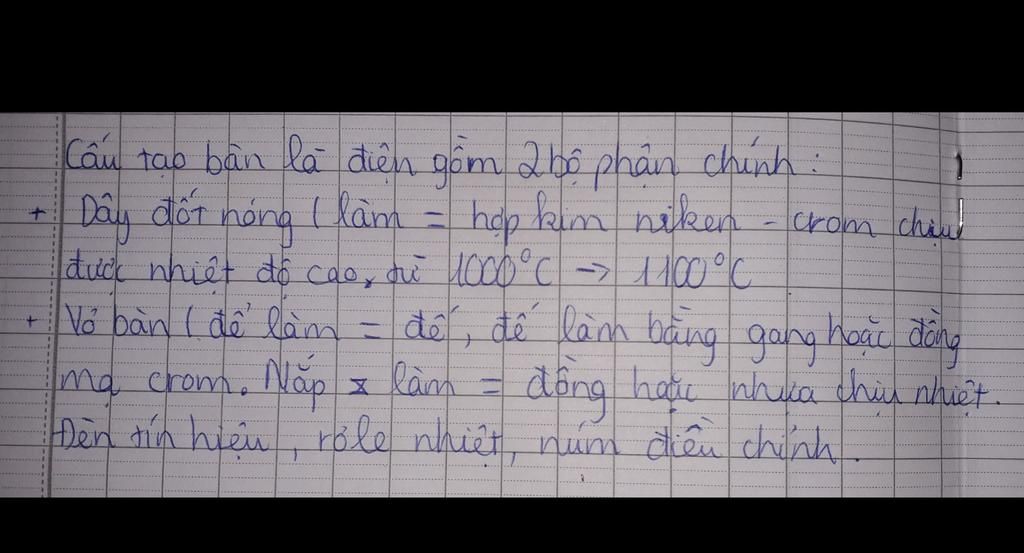 Cấu tạo bàn là điện gồm 2 bộ phận chính:
+ Dây đốt nóng (làm = hợp kim niken - crom chịu
được nhiệt độ cao, từ 1000°C → 1100°C
+ Vỏ bàn (đế làm = đế, đế làm bằng gang hoặc đồng
mạ crom. Nắp làm = đồng hặc nhựa chịu nhiệt.
Đèn tín hiệu, rơle nhiệt, núm điều chỉnh.